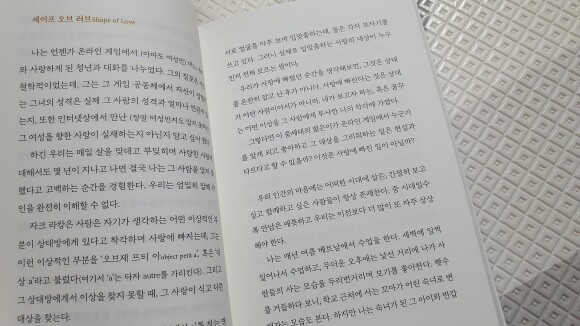 셰이프 오브 러브Shape of Love
나는 언젠가 온라인 게임에서 (아마도
와 사랑하게 된 청년과 대화를 나누었다. 그의 질문은
철학적이었는데, 그는 그 게임 공동체에서 자신이
는 그녀의 성격은 실제 그 사람의 성격과 얼마나
지, 또한 인터넷상에서 만난 (정말 여성인지도 알지
그 여성을 향한 사랑이 실재하는지 아닌지 알고
하긴 우리는 매일 살을 맞대고 부딪히며 사랑한
대해서도 몇 년이 지나고 나면 결국 나는 그 사람을 잘
했다고 고백하는 순간을 경험한다. 우리는 엄밀히 말해
인을 완전히 이해할 수 없다.
자크 라캉은 사람은 자기가 생각하는 어떤 이상적인 부
분이 상대방에게 있다고 착각하며 사랑에 빠지는데, 그는
이런 이상적인 부분을 '오브제 프티 아object petit a', 혹은
상 a'라고 불렀다(여기서 'a'는 타자 autre를 가리킨다). 그리고
그 상대방에게서 이상을 찾지 못할 때, 그 사랑이 식고 다른
상대를 찾는다.
서로 얼굴을 마주 보며 입맞춤하는데, 둘은 각자 보자기를
쓰고 있다. 그러니 실제로 입맞춤하는 사랑의 대상이 누구
인지 전혀 모르는 셈이다.
우리가 사랑에 빠졌던 순간을 생각해보면, 그것은 상대
를 온전히 알고 난 후가 아니다. 사랑에 빠진다는 것은 상대
가 어떤 사람이어서가 아니라, 내가 보고자 하는, 혹은 꿈꾸
는 어떤 이상을 그 사람에게 투사한 나의 착각에 가깝다.
그렇다면 이 중세대의 젊은이가 온라인 게임에서 누군가
를 알게 되고 좋아하고 그 대상을 그리워하는 일은 현실과
다르다고 할 수 있을까? 이것은 사랑에 빠진 일이 아닐까?
우리 인간의 마음에는 어떠한 시대에 살든, 간절히 보고
싶고 함께하고 싶은 사람들이 항상 존재한다. 줌 시대일수
록 만남은 애틋하고 우리는 이전보다 더 많이 또 자주 상상
해야 한다.
나는 매년 여름 베트남에서 수업을 한다. 새벽에 일찍
일어나서 수업하고, 무더운 오후에는 낯선 거리에 나가 사
람들의 사는 모습을 두리번거리며 보기를 좋아했다. 햇수
를 거듭하다 보니, 학교 근처에 사는 꼬마가 어린 숙녀로 변
해가는 모습도 본다. 하지만 나는 숙녀가 된 그 아이와